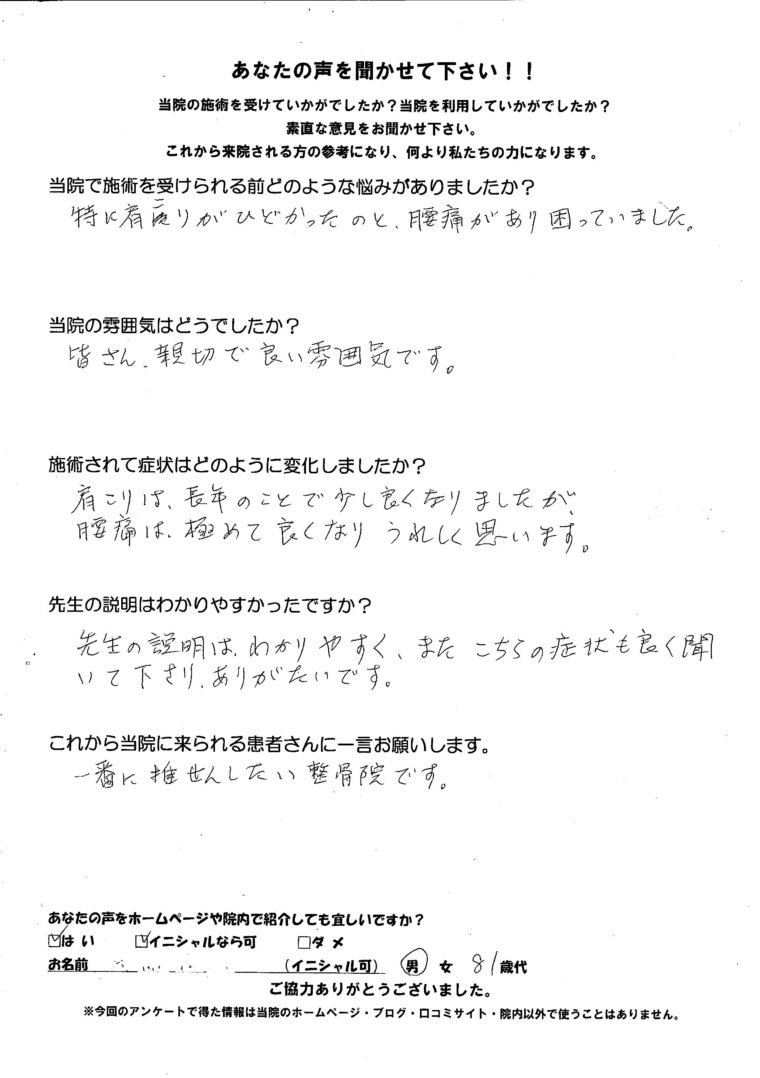 あなたの声を聞かせて下さい！！
当院の施術を受けていかがでしたか？当院を利用していかがでしたか？
素直な意見をお聞かせ下さい。
これから来院される方の参考になり、何より私たちの力になります。
当院で施術を受けられる前どのような悩みがありましたか？
特に肩こりがひどかったのと、腰痛があり困っていました。
当院の雰囲気はどうでしたか？
皆さん、親切で良い雰囲気です。
施術されて症状はどのように変化しましたか？
肩こりは、長年のことで少し良くなりましたが、
腰痛は、極めて良くなりうれしく思います。
先生の説明はわかりやすかったですか？
先生の説明は、わかりやすく、またこちらの症状も良く聞
いて下さり、ありがたいです。
これから当院に来られる患者さんに一言お願いします。
一番に推せんしたい整骨院です。
あなたの声をホームページや院内で紹介しても宜しいですか？
☑はい ☑イニシャルなら可 □ダメ
お名前 (イニシャル可) 男 女 81歳代
ご協力ありがとうございました。
※今回のアンケートで得た情報は当院のホームページ・ブログ・口コミサイト・院内以外で使うことはありません。